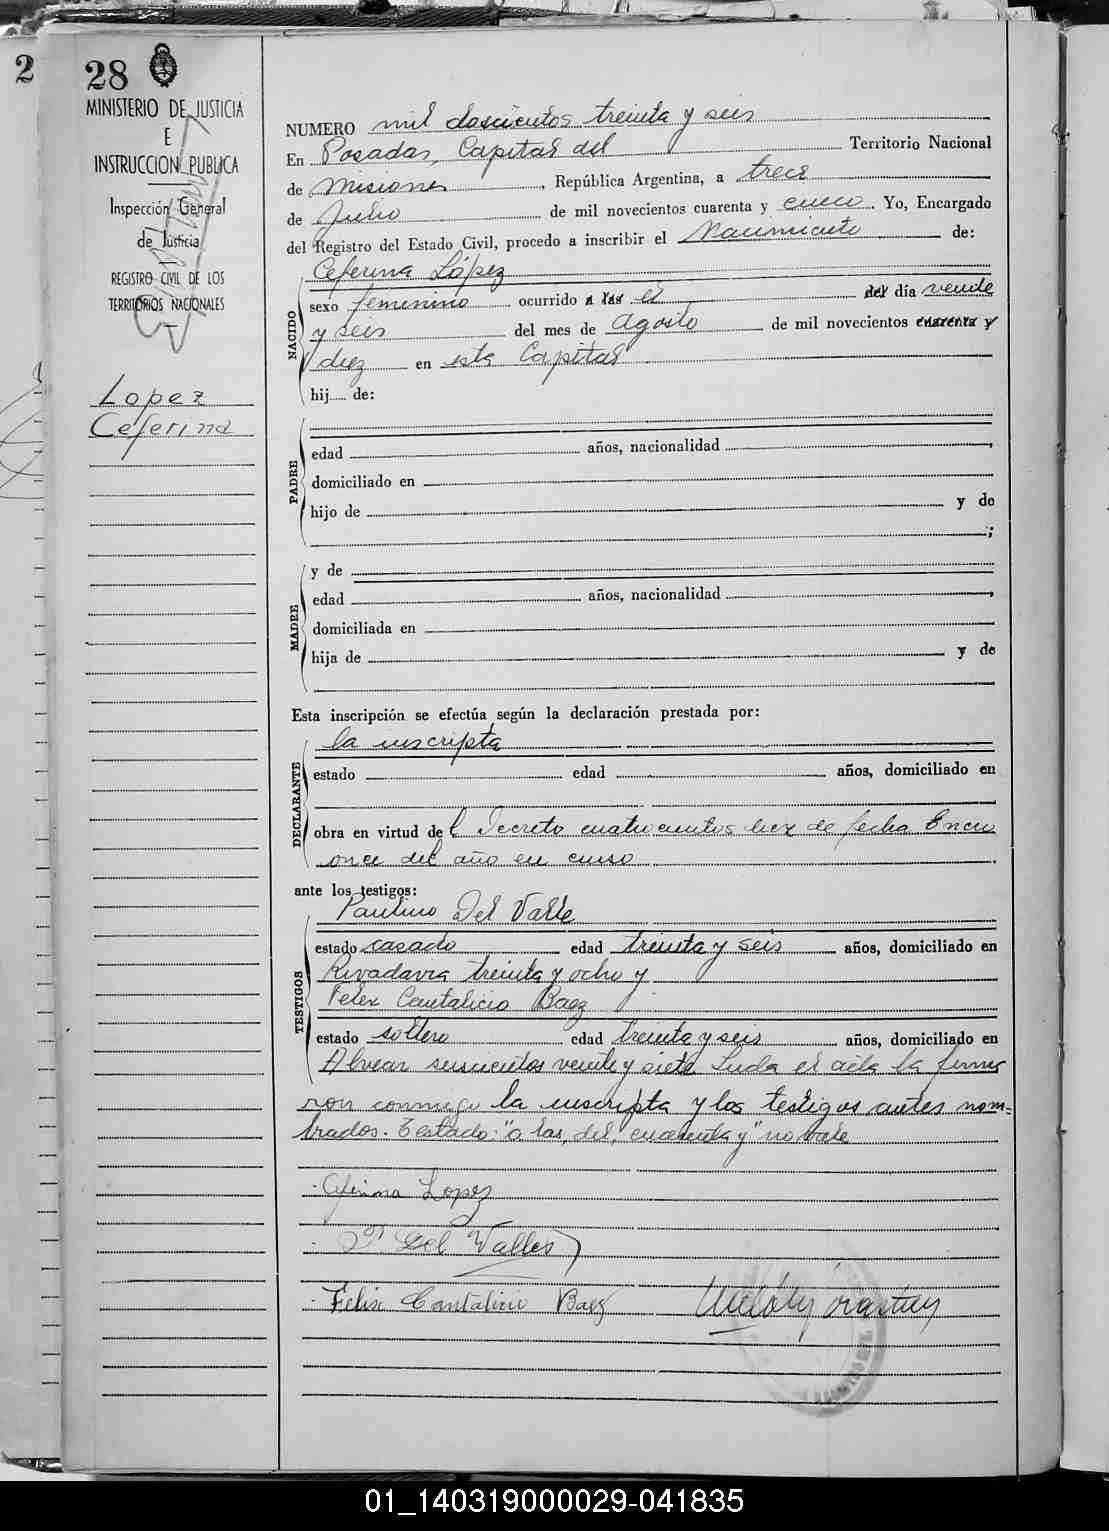 2
28
MINISTERIO DE JUSTICIA
E
INSTRUCCION PUBLICA
Inspección General
de Justicia
REGISTRO CIVIL DE LOS
TERRITORIOS NACIONALES
Lopez
Ceferina
NUMERO mil doscientos treinta y seis
En Posadas, Capital del Territorio Nacional
de Misiones, República Argentina, a trece
de Julio de mil novecientos cuarenta y cinco. Yo, Encargado
del Registro del Estado Civil, procedo a inscribir el Nacimiento de:
NACIDO
Ceferina López
sexo femenino ocurrido a las el del día veinte
y seis del mes de Agosto de mil novecientos cuarenta y
diez en esta Capital
hij..... de:
PADRE
edad años, nacionalidad
domiciliado en
hijo de y de
;
MADRE
y de
edad años, nacionalidad
domiciliada en
hija de y de
Esta inscripción se efectúa según la declaración prestada por:
DECLARANTE
la inscripta
estado edad años, domiciliado en
obra en virtud del Decreto cuatrocientos diez de fecha Enero
once del año en curso
ante los testigos:
TESTIGOS
Paulino Del Valle
estado casado edad treinta y seis años, domiciliado en
Rivadavia treinta y ocho y
Felix Cantalicio Baez
estado soltero edad treinta y seis años, domiciliado en
Alvear seiscientos veinte y siete Leida el acta la firma
ron conmigo la inscripta y los testigos antes nom=
brados. Testado: "a las, del, cuarenta y" no vale
Ceferina Lopez
P. Del Valles
Felix Cantalicio Baez
01_140319000029-041835